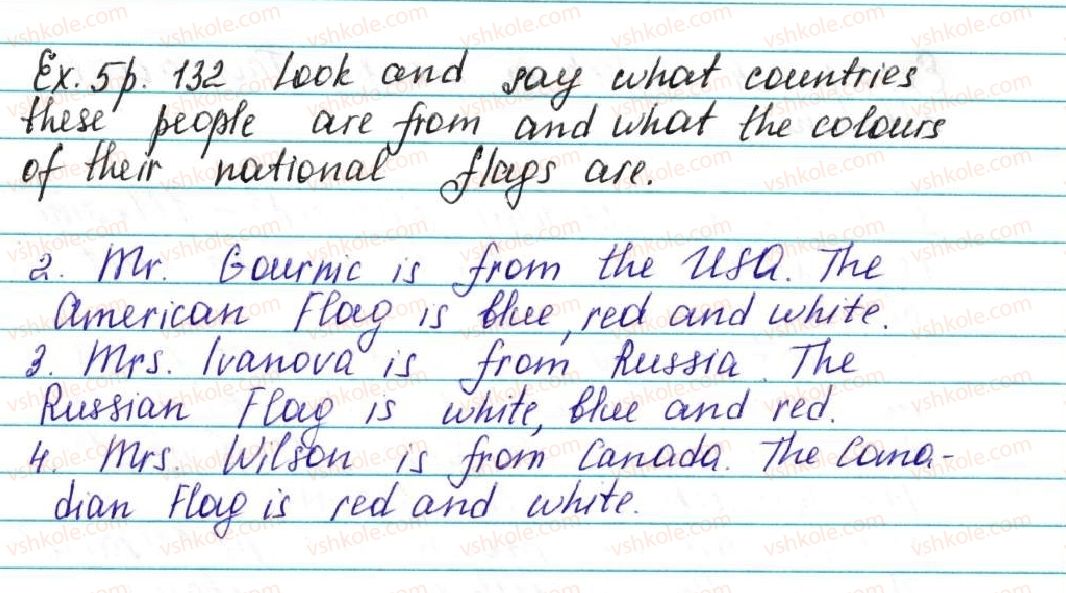 Ex. 5 p. 132 Look and say what countries
these people are from and what the colours
of their national flags are.
2. Mr. Gournic is from the USA. The
American Flag is blue, red and white.
3. Mrs. Ivanova is from Russia. The
Russian Flag is white, blue and red.
4. Mrs. Wilson is from Canada. The Cana-
dian Flag is red and white.